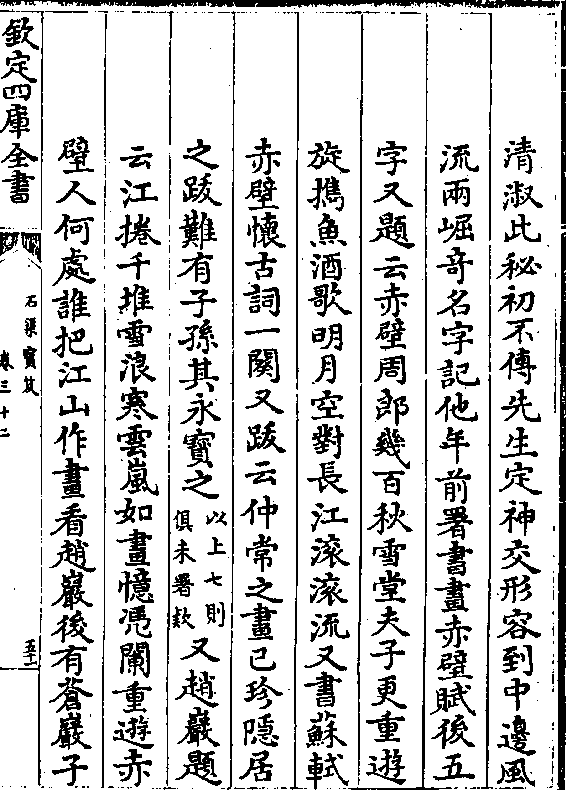 清淑此秘初不傳先生定神交形容到中邊風
流兩崛奇名字記他年前署書畫赤壁賦後五
字又題云赤壁周郎幾百秋雪堂夫子更重遊
旋擕魚酒歌明月空對長江滚滚流又書蘇軾
赤壁懷古詞一闋又跋云仲常之畫已珍隱居
之跋難有子孫其永寶之以上七則俱未署欵又趙巖題
云江捲千堆雪浪寒雲嵐如畫憶凭闌重遊赤
壁人何處誰把江山作畫看趙巖後有蒼巖子
欽定四庫全書
石渠寶笈
卷三十二